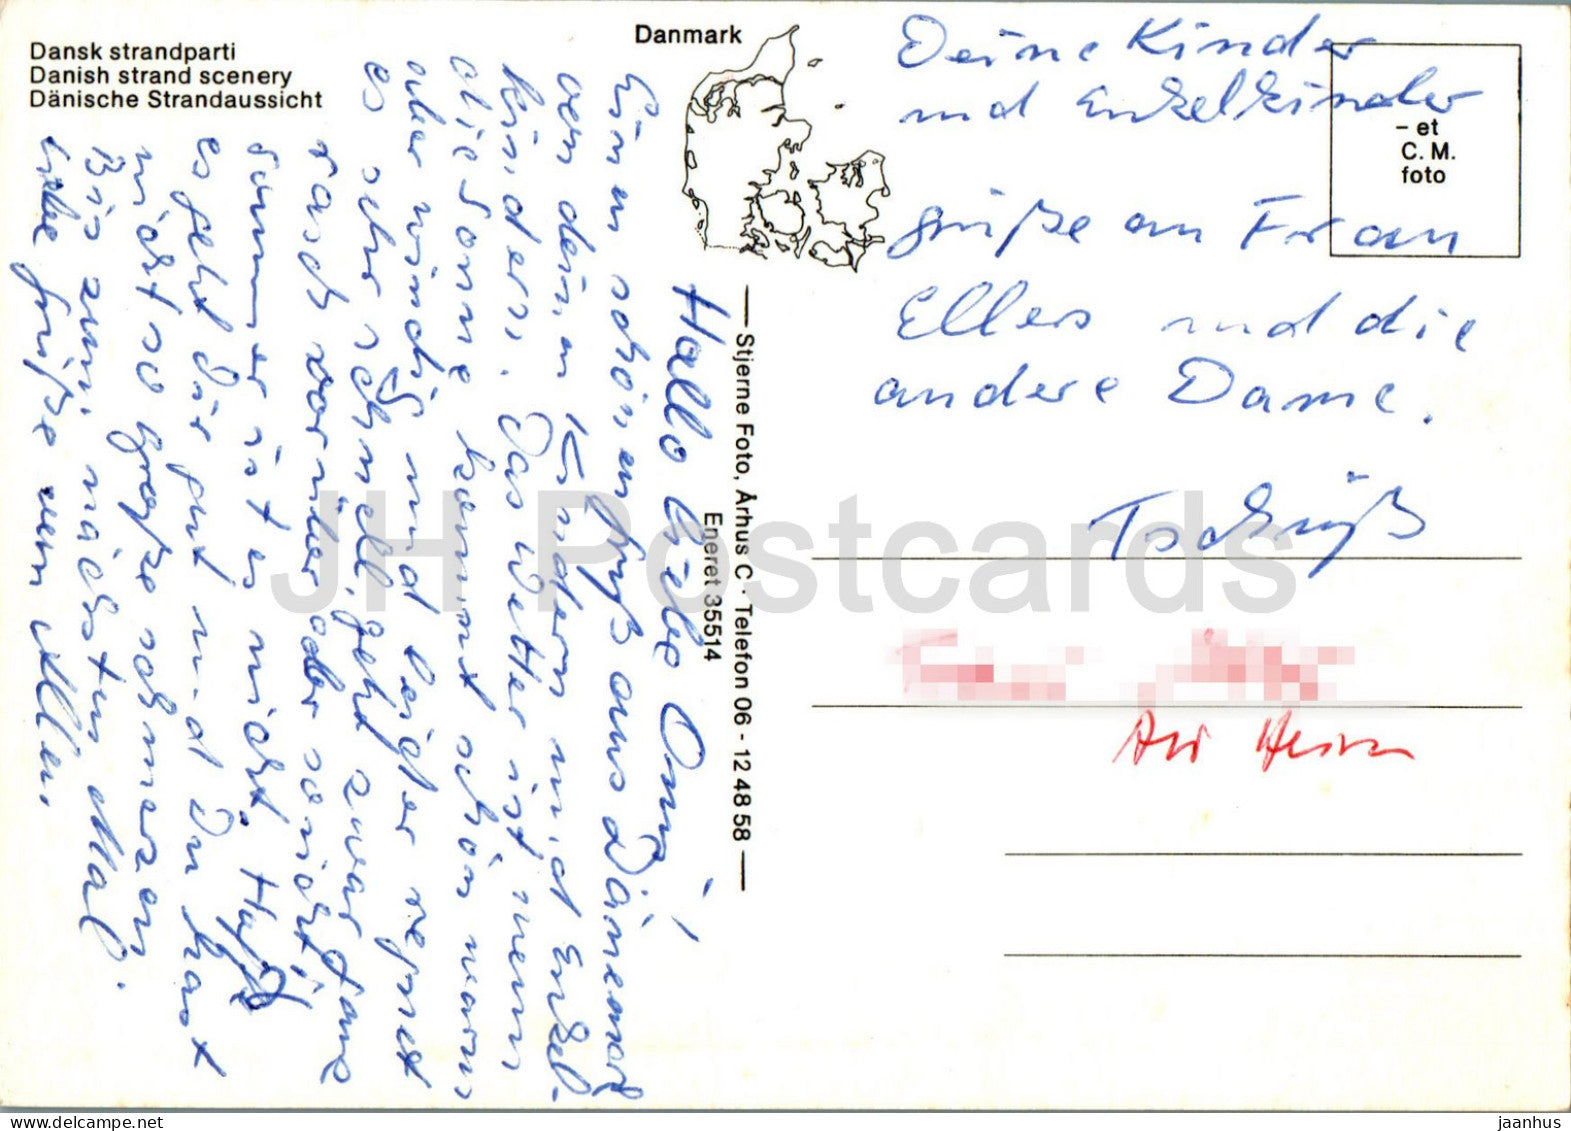 Dansk strandparti
Danish strand scenery
Dänische Strandaussicht
Danmark
– et
C. M.
foto
Stjerne Foto, Århus C · Telefon 06 - 12 48 58
Eneret 35514
Hallo liebe Omi!
Einen schönen Gruß aus Dänemark
von deinen Kindern und Enkel-
kindern. Das Wetter ist wenn
die Sonne kommt schön warm
aber windig und leider regnet
es sehr schnell, geht zwar
rasch vorüber aber schönste
Sommer ist es nicht. Hoffe
es geht Dir gut und Du hast
nicht so große schmerzen
Bis zum nächsten Mal.
liebe Grüße von Allen.
Deine Kinder
und Enkelkinder
grüße an Frau
Ellers und die
andere Dame.
Tschüß
JH Postcards
jaanhus